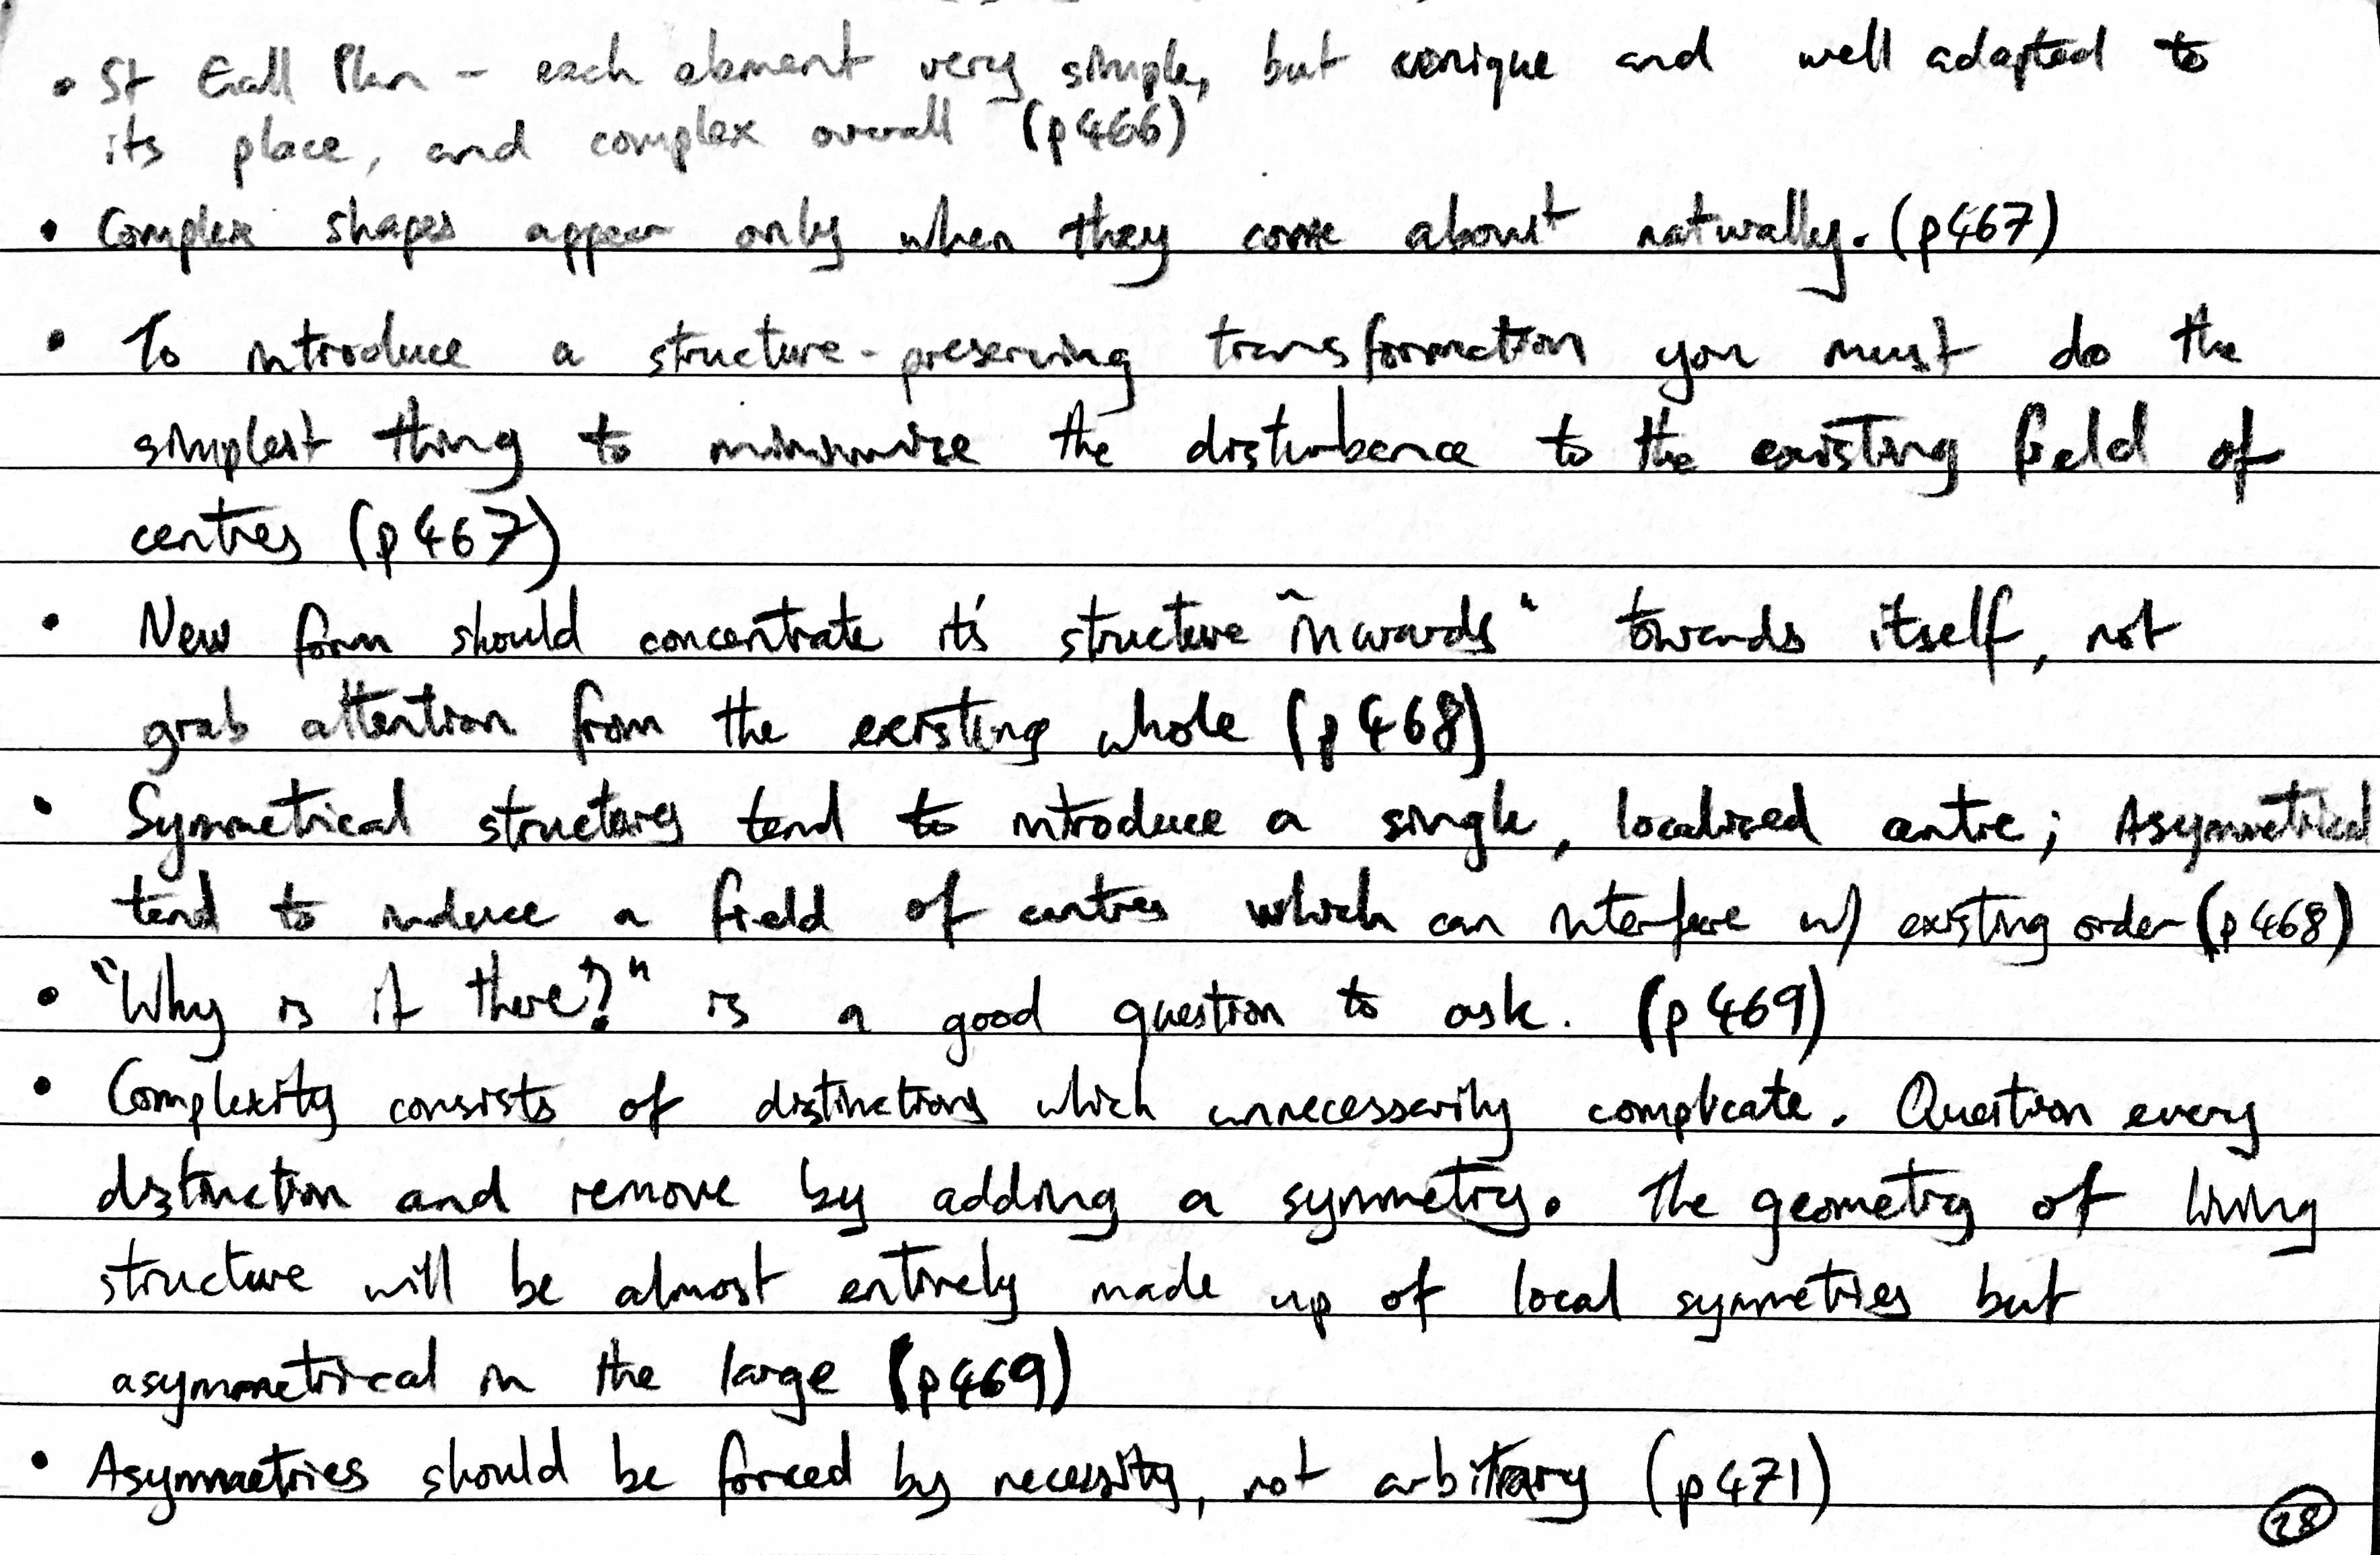 • St Gall Plan – each element very simple, but unique and well adapted to
its place, and complex overall (p466)
• Complex shapes appear only when they come about naturally. (p467)
• To introduce a structure-preserving transformation you must do the
simplest thing to minimise the disturbance to the existing field of
centres (p467)
• New form should concentrate it's structure "inwards" towards itself, not
grab attention from the existing whole (p468)
• Symmetrical structures tend to introduce a single, localised centre; Asymmetrical
tend to induce a field of centres which can interfere w/ existing order (p468)
• "Why is it there?" is a good question to ask. (p469)
• Complexity consists of distinctions which unnecessarily complicate. Question every
distinction and remove by adding a symmetry. The geometry of living
structure will be almost entirely made up of local symmetries but
asymmetrical in the large (p469)
• Asymmetries should be forced by necessity, not arbitrary (p471)
28